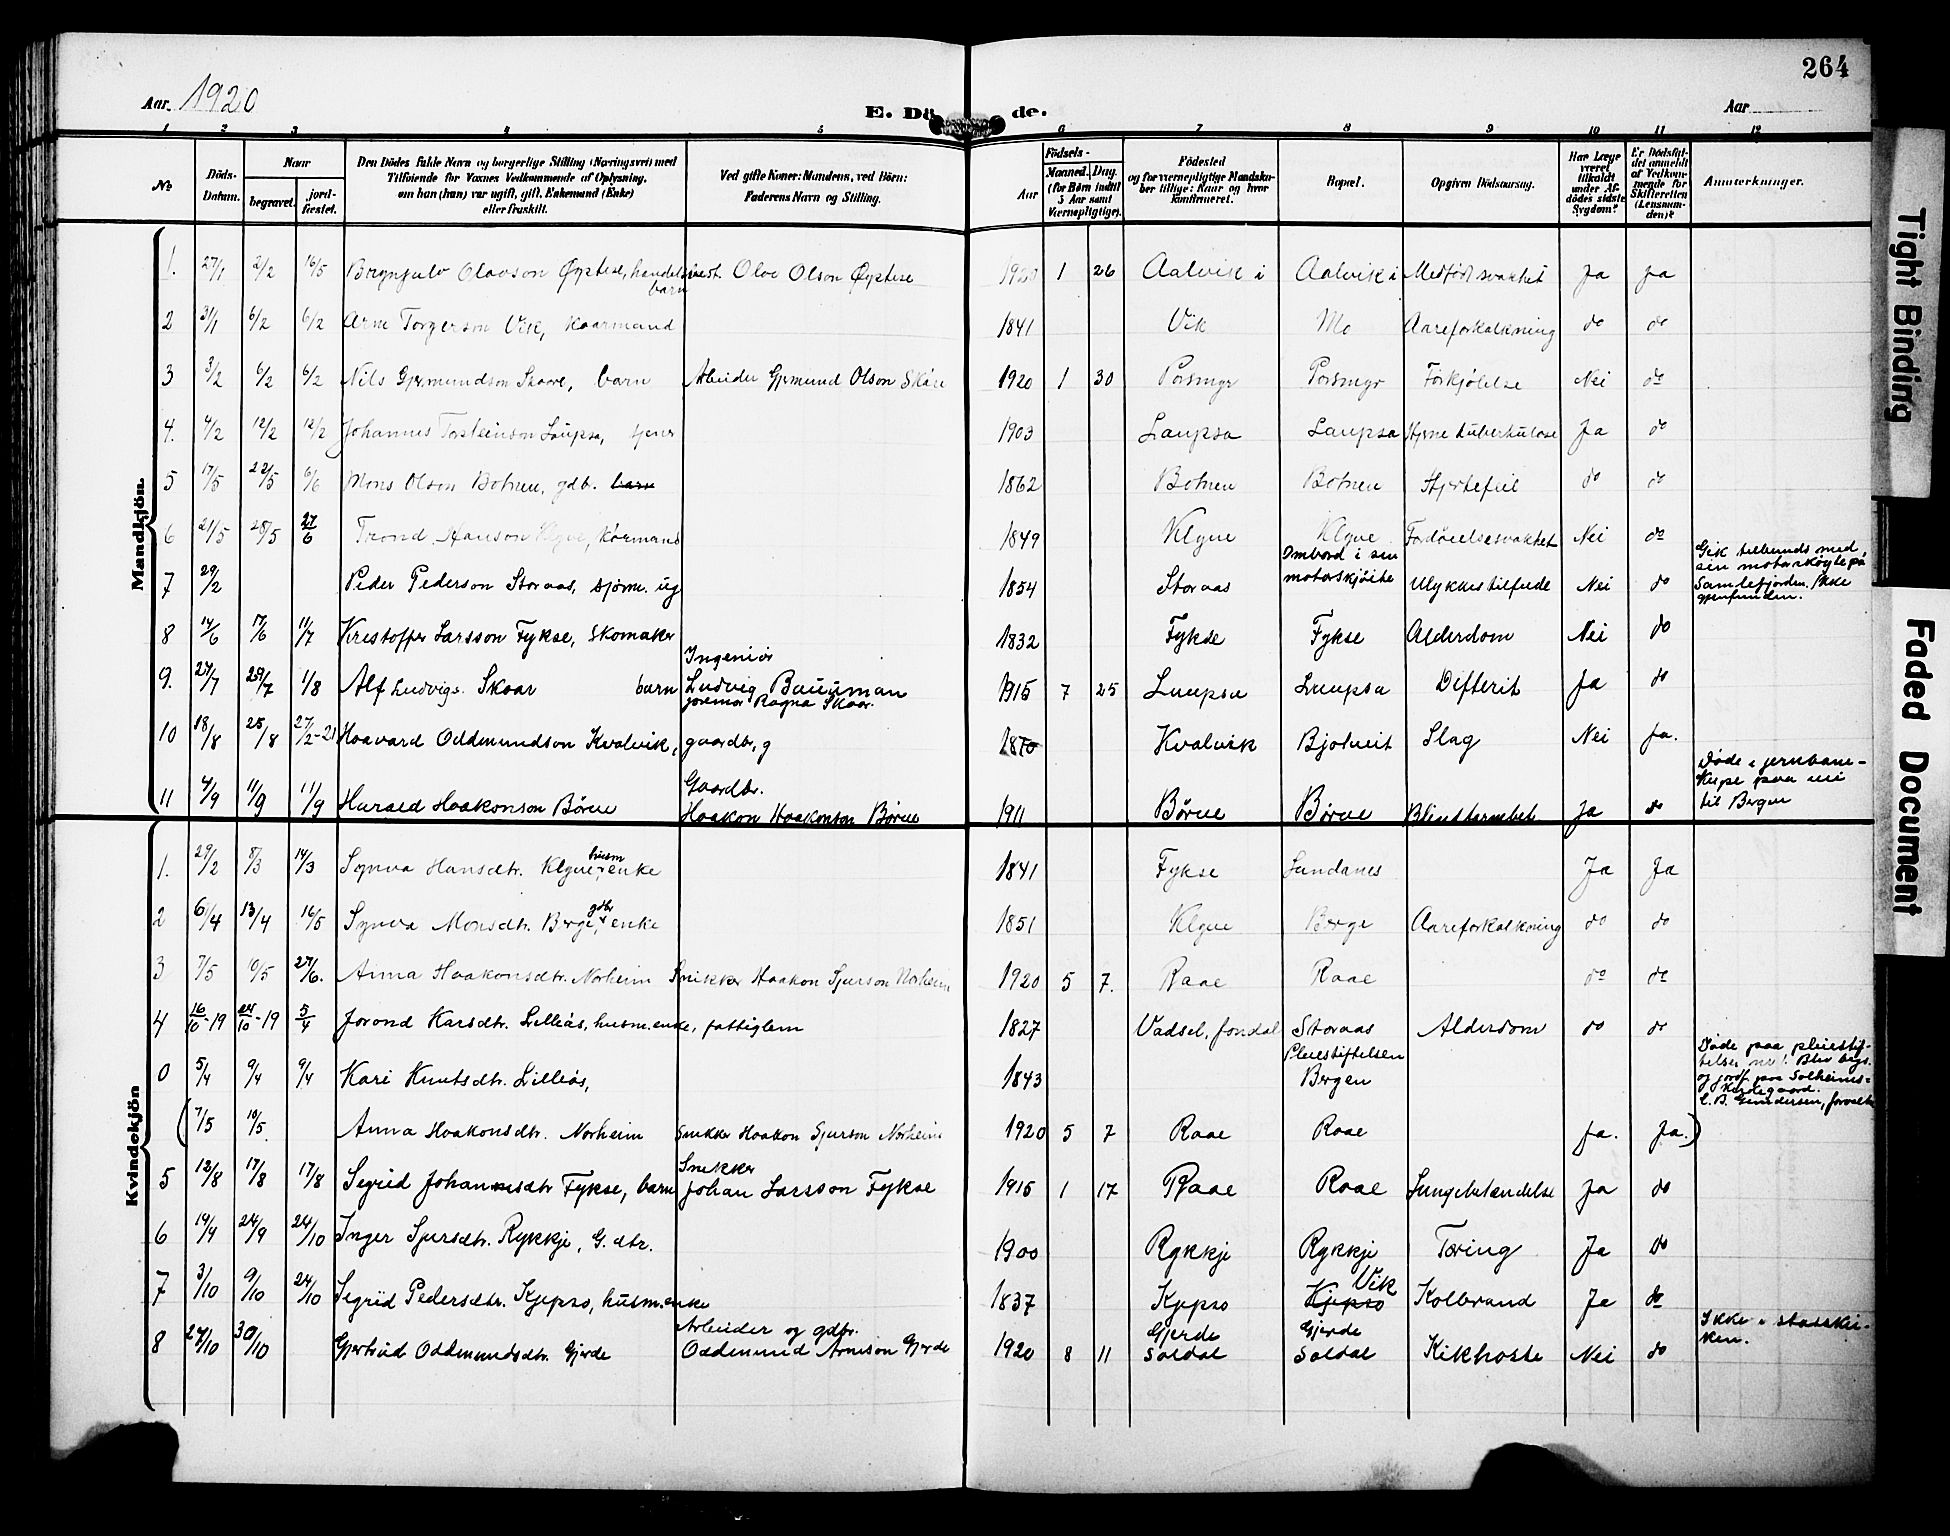 264
Aar. 1920 E. Dö de. Aar
1 2 3 4 5 6 7 8 9 10 11 12
№ Döds-Datum. Naar begravet. jord-fæstet. Den Dödes fulde Navn og borgerlige Stilling (Næringsvei) med Tilföiende for Voxnes Vedkommende af Oplysning, om hun (han) var ugift, gift, Enkemand (Enke) eller fraskilt. Ved gifte Koner: Mandens, ved Börn: Faderens Navn og Stilling. Födsels- Aar Maaned. Dag. (for Börn indtil 5 Aar samt Værnepligtige). Födested og for værnepligtige Mandskaber tillige: Naar og hvor konfirmeret. Bopæl. Opgiven Dödsaarsag. Har Læge været tilkaldt under Afdödes sidste Sygdom? Er Dödsfaldet anmeldt af Vedkommende for Skifteretten (Lensmanden)? Anmærkninger.
Mandkjön.
1. 27/1 2/2 16/5 Brynjulv Olavson Øystese, handelsbest. barn Olav Olson Øystese 1920 1 26 Aalvik i Aalvik i Medfødt svakhet Ja Ja
2 31/1 6/2 6/2 Arne Torgerson Vik, kaarmand 1841 Vik Mo Aareforkalkning do do
3 3/2 6/2 6/2 Nils Gjermundson Skaare, barn Arbeider Gjermund Olson Skåre 1920 1 30 Porsmyr Porsmyr Forkjølelse Nei do
4. 4/2 12/2 12/2 Johannes Torsteinson Laupsa, tjener 1903 Laupsa Laupsa Hjerne tuberkulose Ja do
5 17/5 22/5 6/6 Mons Olson Botnen, gdb. barn 1862 Botnen Botnen Hjertefeil do do
6 21/5 28/5 27/6 Trond Hanson Klyve, kårmand 1849 Klyve Klyve Fordøielsessvakhet Nei do
7 29/2 Peder Pederson Storaas, sjøm. ug 1854 Storaas Ombord i sin motorskjøite Ulykkestilfælde Nei do Gik tilbunds med sin motorskøyte på Samlefjorden. Ikke gjenfunden.
8 14/6 17/6 11/7 Kristoffer Larsson Fykse, Skomaker 1832 Fykse Fykse Alderdom Nei do
9. 27/7 29/7 1/8 Alf Ludvigs. Skaar barn Ingeniør Ludvig Bauuman formor Ragna Skaar. 1915 7 25 Laupsa Laupsa Difterit Ja do
10 18/8 25/8 27/2-21 Haavard Oddmundson Kvalvik, gaardbr, g 1870 Kvalvik Bjotveit Slag Nei Ja.
11 4/9 11/9 11/9 Harald Haakonson Børve Gaardbr. Haakon Haakonson Børve 1911 Børve Børve Blindtarmbet. Ja do Døde i jernbane-kupe paa vei til Bergen
Kvindekjön
1. 29/2 8/3 14/3 Synva Hansdtr. Klyve, husm enke 1841 Fykse Sandanes Ja Ja
2 6/4 13/4 16/5 Synva Monsdtr. Berge, gdbr enke 1851 Klyve Berge Aareforkalkning do do
3 7/5 10/5 27/6. Anna Haakonsdtr. Norheim Snikker Haakon Sjurson Norheim 1920 5 7. Raae Raae do do
4 16/10-19 24/10-19 5/4 Jorond Larsdtr. Lilleås, husm.enke, fattiglem 1827 Vadsel, fondal Storaas Alderdom do do
0 5/4 9/4 9/4 Kari Knutsdtr. Lilleås, 1843 Pleiestiftelsen Bergen Døde paa pleiestiftelser nr 1. Blev begr. og jordf. paa Solheims-Kirkegaard. C. B. Gundersen, forvalter
( 7/5 10/5 Anna Haakonsdtr. Norheim Snikker Haakon Sjurson Norheim 1920 5 7 Raae Raae Ja. Ja.)
5 13/8 17/8 17/8 Sigrid Johannesdtr Fykse, barn Snikker Johan Larsson Fykse 1915 1 17 Raae Raae Lungebetændelse Ja do
6 19/9 24/9 24/10 Inger Sjursdtr. Rykkje, G. dtr. 1900 Rykkje Rykkje Tæring Ja do
7 3/10 9/10 24/10 Sigrid Pedersdtr. Kjepso, husm.enke 1837 Kjepso Kjepso Vik Kolbrand Ja do
8 27/10 30/10 Gjertrud Oddmundsdtr. Gjerde Arbeider og gdbr. Oddmund Arneson Gjerde 1920 8 11 Gjerde Soldal Gjerde Soldal Kikhoste Nei do Ikke i statskirken.
Tight Binding
Faded Document